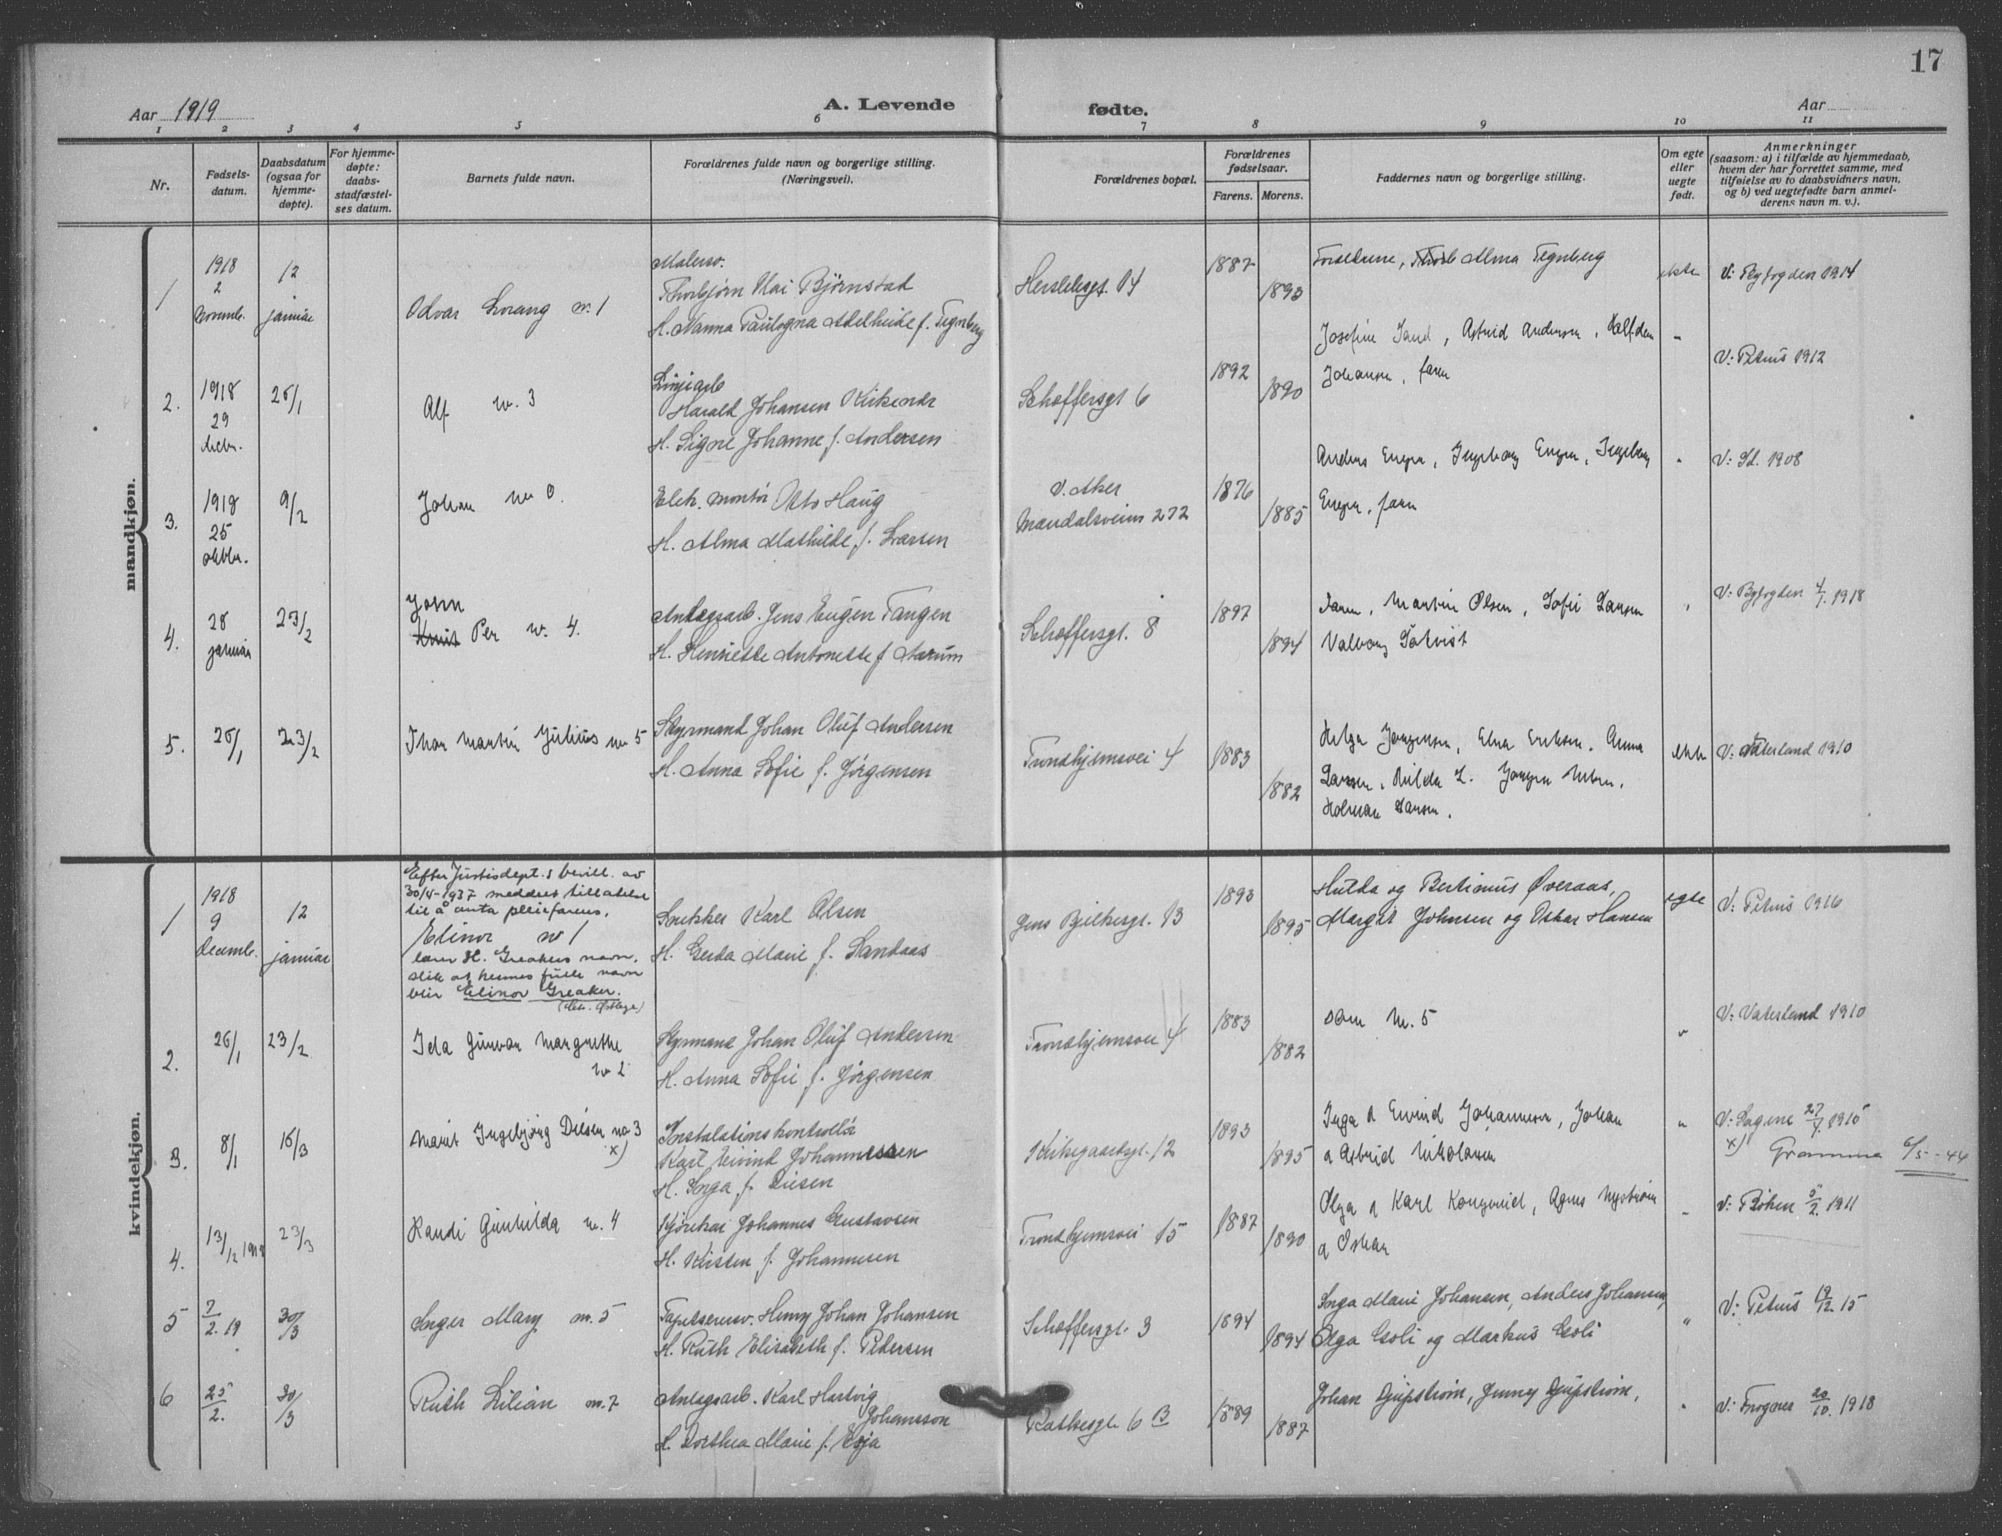 17
Aar 1919
A. Levende
fødte.
Aar
1 2 3 4 5 6 7 8 9 10 11
Nr.
Fødsels-
datum.
Daabsdatum
(ogsaa for
hjemme-
døpte).
For hjemme-
døpte:
daabs-
stadfæstel-
ses datum.
Barnets fulde navn.
Forældrenes fulde navn og borgerlige stilling.
(Næringsvei).
Forældrenes bopæl.
Forældrenes
fødselsaar.
Farens. Morens.
Faddernes navn og borgerlige stilling.
Om egte
eller
uegte
født.
Anmerkninger
(saasom: a) i tilfælde av hjemmedaab,
hvem der har forrettet samme, med
tilføielse av to daabsvidners navn,
og b) ved uegtefødte barn anmel-
derens navn m. v.).
mandkjøn.
1
1918
2
Novemb.
12
januar
Odvar Lorang nr. 1
Malersv.
Thorbjørn Kai Bjørnstad
H. Nanna Paulogna Adelheide f. Tegnberg
Herslebsgt. 14
1887
1893
Forældrene, Alma Tegnberg
ekte
V: Byfogden 1914
2.
1918
29
Decbr.
26/1
Alf nr. 3
Harald Johansen Kirkendr
H. Signe Johanne f. Andersen
Schæffersgt 6
1892
1890
Josefine Sand, Astrid Andersen, Halfdan
Johansen, faren
"
V: Petrus 1912
3.
1918
25
oktbr.
9/2
Johan nr 0.
Elek. montør Otto Haug
H. Alma Mathilde f. Larsen
V. Aker
Maridalsveien 272
1876
1885
Anders Engen, Ingeborg Engen, Ingeborg
Engen, faren
"
V: St. 1908
4.
28
januar
23/2
John
Knut Per nr. 4.
Anlegsarb. Jens Eugen Tangen
H. Henriette Antonette f Aarum
Schæffersgt. 8
1897
1894
Faren, Martin Olsen, Sofie Larsen
Valborg
"
V: Byfogden 4/7. 1918
5.
26/1
23/2
Thor Martin Julius nr 5
Styrmand Johan Oluf Andersen
H. Anna Sofie f. Jørgensen
Trondhjemsvei 4
1883
1882
Helga Jørgensen, Elna Eriksen, Anna
Larsen, Hilda L. Jørgen
Holman Larsen.
ekte
V: Vaterland 1910
kvindekjøn.
1
1918
9
Decemb.
12
januar
Efter Justisdept.s bevill. av
30/4-1937 meddeles tillatelse
til å anta pleiefarens,
Elinor nr 1
lærer H. Greakers navn,
slik at hennes fulle navn
blir Elinor Greaker.
Snekker Karl Olsen
H. Gerda Marie f. Sandaas
Jens Bjelkesgt. 13
1893
1895
Hulda og Bertinius Øveraas,
Margit Johnsen og Oskar Hansen
egte
V: Petrus 1916
2.
26/1
23/2
Ida Gunvor Margrethe
nr 2
Styrmand Johan Oluf Andersen
H. Anna Sofie f. Jørgensen
Trondhjemsvei 4
1883
1882
som Nr. 5
"
V: Vaterland 1910
3.
8/1
16/3
Marit Ingebjørg Diesen nr 3
x)
Instalationskontrollør
Karl Eivind Johannessen
H. Inga f. Diesen
Kirkegaardsgt. 12
1893
1895
Inga & Eivind Johannessen, Johan
& Astrid Nikolaisen
"
V: Sagene 27/7. 1915
x)
6/5-44
4.
13/12 1918
23/3
Randi Gunhilda nr. 4
Kjørekar Johannes Gustavsen
H. Kristen f. Johannesen
Trondhjemsvei 15
1887
1890
Olga & Karl Kongsrud, Agnes Nystrøm
& Oskar
"
V: 5/2. 1911
5
7/2. 19
30/3
Inger Mary nr. 5
Tapetserersv. Henry Johan Johansen
H. Ruth Elisabeth f. Pedersen
Schæffersgt. 3
1894
1894
Inga Marie Johansen, Anders Johansen,
Olga Gsoli og Markus Gsoli
"
V: Petrus 19/12 15
6
25/2.
30/3
Ruth Lilian nr. 7
Anlagsarb. Karl Hartvig
Johansson
H. Dorthea Marie f. Eoja
Rathkesgt 6 B
1889
1887
Johan Djupstrøm, Jenny Djupstrøm,
"
V: Frogner 20/10. 1918